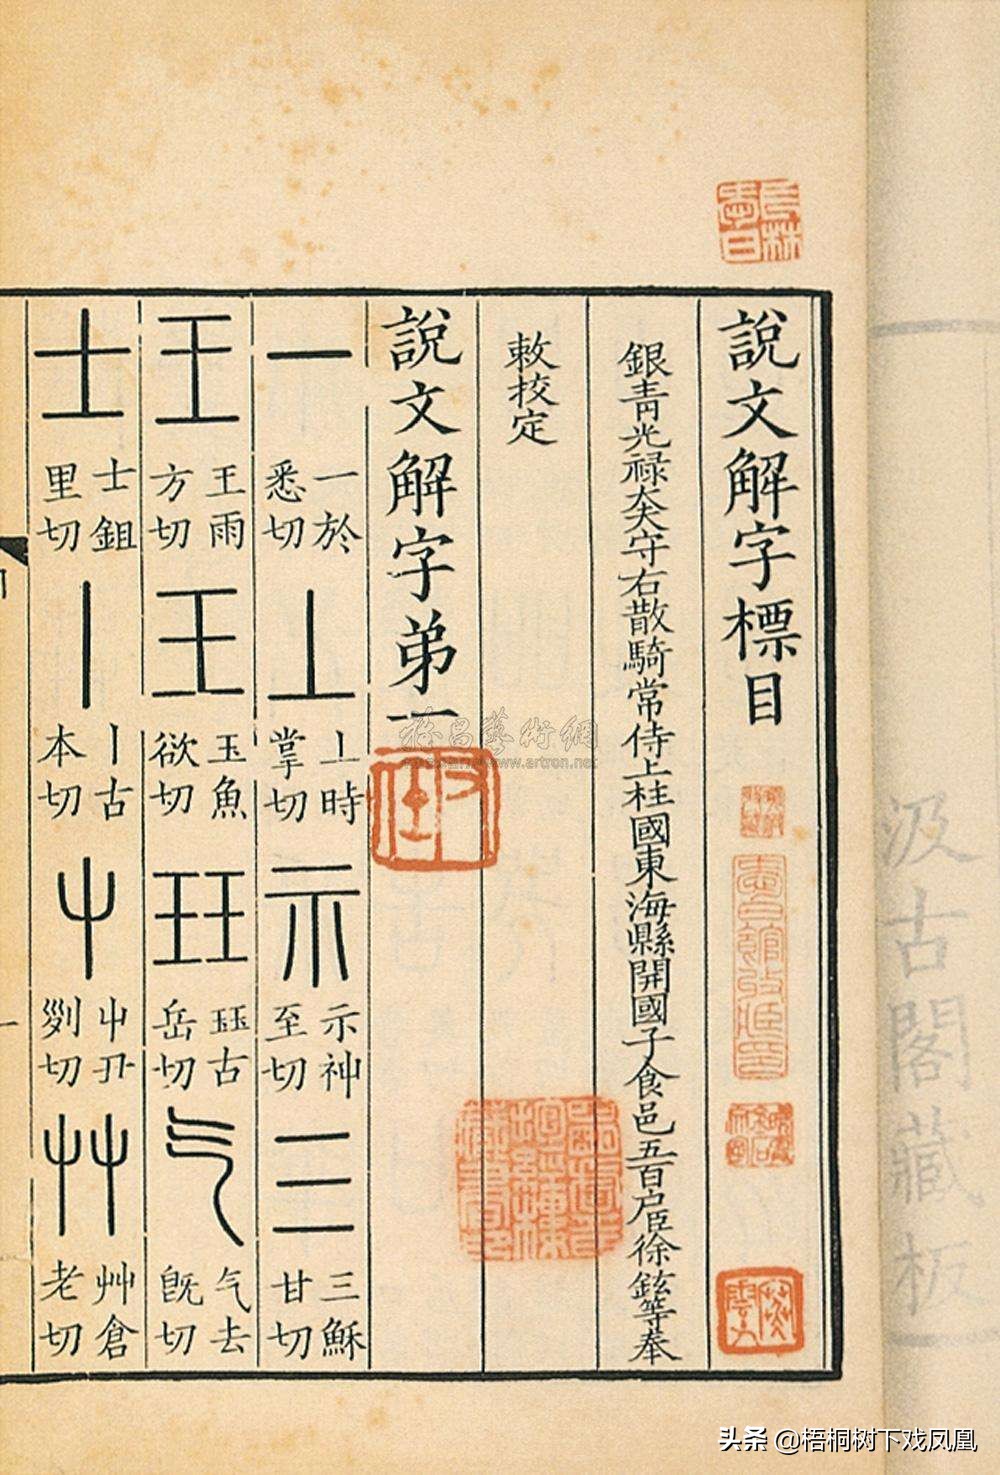 說文解字標目
銀青光祿大夫守右散騎常侍上柱國東海縣開國子食邑五百户臣徐鉉等奉
敕校定
說文解字弟一
一 一於悉切 丄 丄時掌切 示 示神至切 三 三穌甘切
王 王雨方切 王 玉魚欲切 玨 玨古岳切 气 气去旣切
士 士鉏里切 丨 丨古本切 屮 屮丑列切 艸 艸倉老切
一
汲古閣藏板
www.artron.net
头条 @梧桐树下戏凤凰